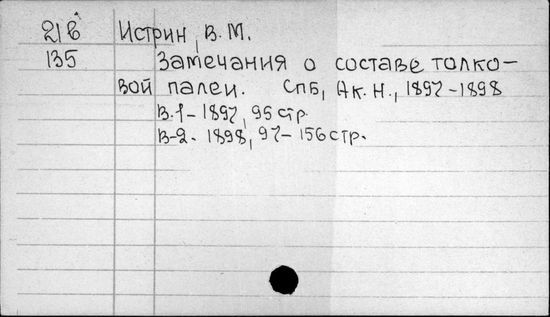 21 б Истрин, В. М.
135 Замечания о составе толко-
вой палеи. Спб, Ак. Н., 1897-1898
В. 1 - 1897, 95 стр.
В-2. 1898, 97-156 стр.